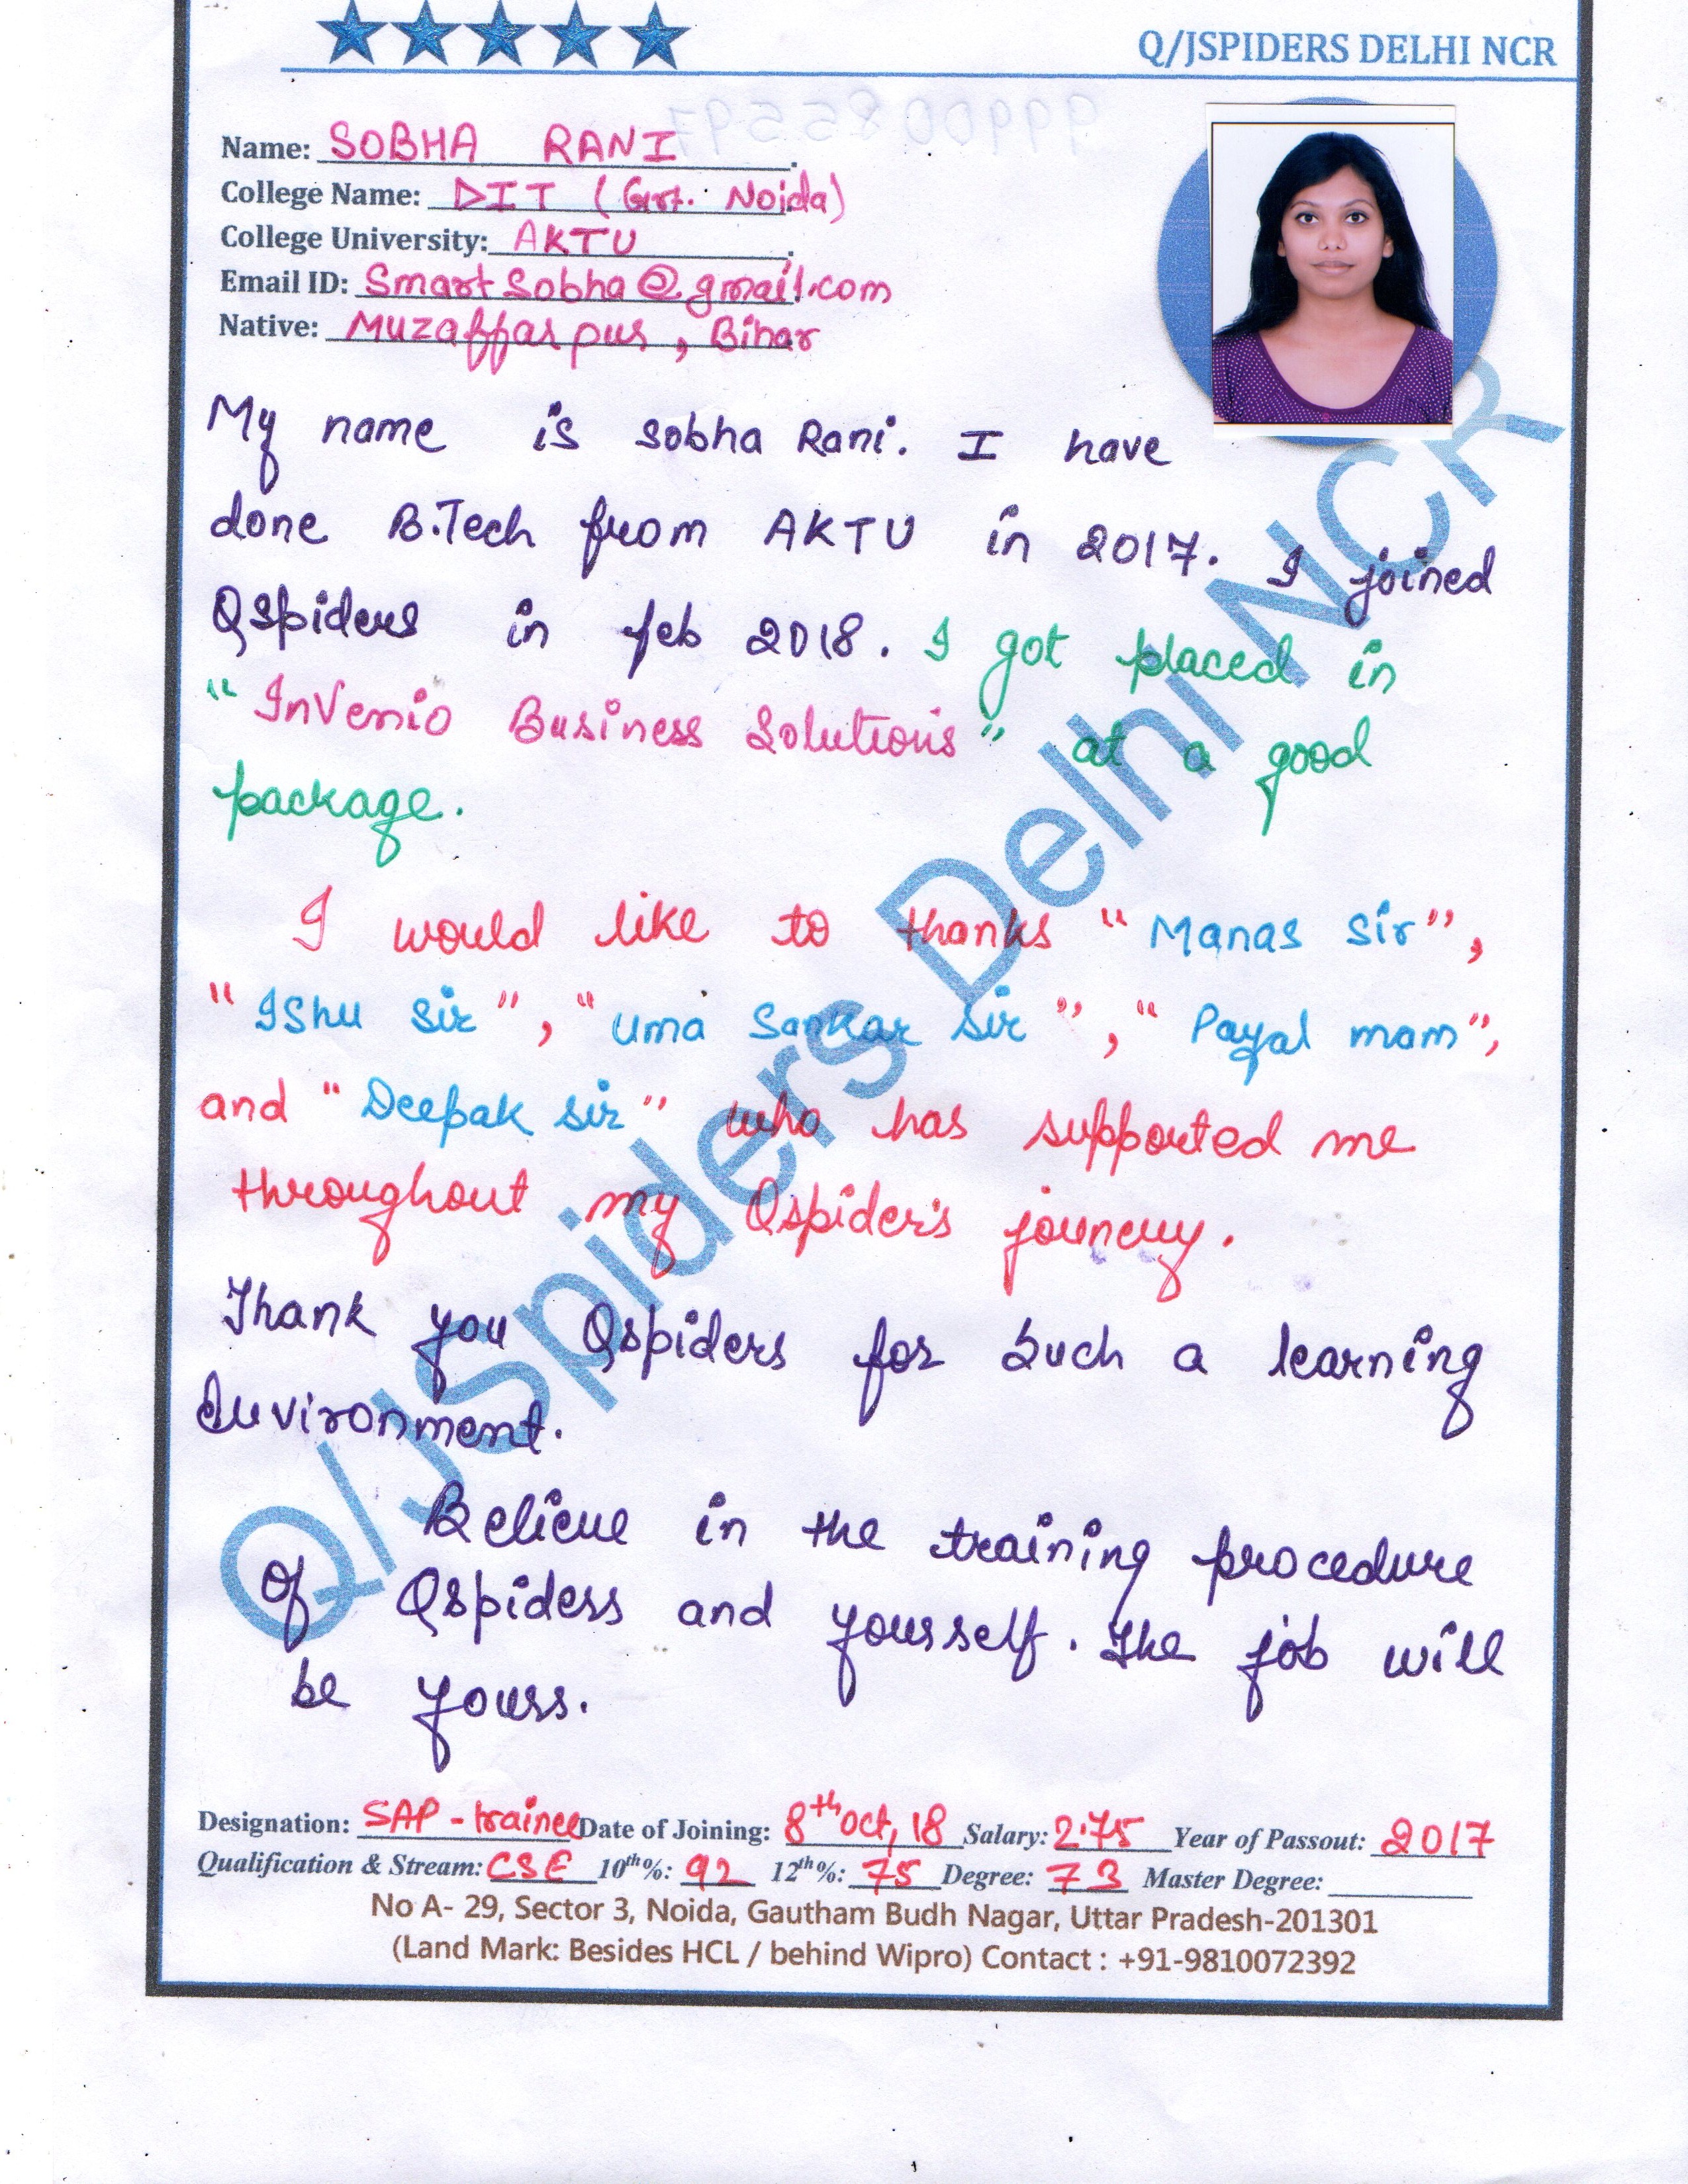 Q/JSPIDERS DELHI NCR
Name: SOBHA RANI
College Name: DIT (Grt. Noida)
College University: AKTU
Email ID: SmartSobha@gmail.com
Native: Muzaffarpur, Bihar
My name is Sobha Rani. I have
done B.Tech from AKTU in 2017. I joined
QSpiders in feb 2018. I got placed in
"InVenio Business Solutions" at a good
package.
I would like to thanks "Manas Sir",
"IShu Sir", "Uma Sankar Sir", "Payal mam",
and "Deepak sir" who has supported me
throughout my Qspider's journey.
Thank you Qspiders for such a learning
Environment.
Believe in the training procedure
Of Qspiders and yourself. The job will
be yours.
Q/JSpiders Delhi NCR
Designation: SAP - trainee Date of Joining: 8th Oct, 18 Salary: 2.75 Year of Passout: 2017
Qualification & Stream: CSE 10th%: 92 12th%: 75 Degree: 73 Master Degree:
No A- 29, Sector 3, Noida, Gautham Budh Nagar, Uttar Pradesh-201301
(Land Mark: Besides HCL / behind Wipro) Contact : +91-9810072392